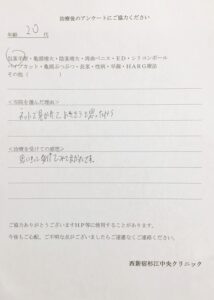 治療後のアンケートにご協力ください
年齢 20代
包茎手術・亀頭増大・陰茎増大・埋没ペニス・ED・シリコンボール
パイプカット・亀頭ぶつぶつ・長茎・性病・早漏・HARG療法
その他（ ）
＜当院を選んだ理由＞
ネットで見かけて
＜治療を受けての感想＞
思いきって
ご協力ありがとうございますHP等に使用することがあります。
今後もご心配、ご不明な点がございましたらご遠慮なくご連絡ください。
西新宿杉江中央クリニック